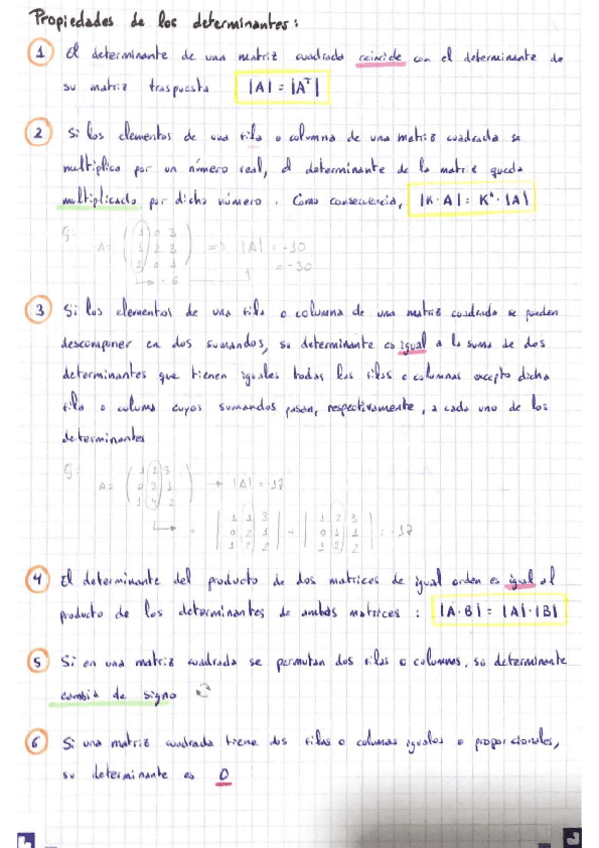 Propiedades de los determinantes:
1 El determinante de una matriz cuadrada coincide con el determinante de
su matriz traspuesta |A| = |Aᵀ|
2 Si los elementos de una fila o columna de una matriz cuadrada se
multiplica por un número real, el determinante de la matriz queda
multiplicado por dicho número. Como consecuencia, |K·A| = Kⁿ·|A|
Ej:
1 0 3
A= 1 2 3 => |A| = -10
2 0 1 = -30
3 Si los elementos de una fila o columna de una matriz cuadrada se pueden
descomponer en dos sumandos, su determinante es igual a la suma de dos
determinantes que tienen iguales todas las filas o columnas excepto dicha
fila o column cuyos sumandos pasan, respectivamente, a cada uno de los
determinantes
Ej:
1 2 3
A= 0 3 1 → |A| = -17
1 4 2
1 1 3 1 1 3
= 0 2 1 + 0 1 1 = -17
1 2 2 1 2 2
4 El determinante del producto de dos matrices de igual orden es igual al
producto de los determinantes de ambas matrices: |A·B| = |A|·|B|
5 Si en una matriz cuadrada se permutan dos filas o columnas, su determinante
cambia de signo
6 Si una matriz cuadrada tiene dos filas o columnas iguales o proporcionales,
su determinante es 0